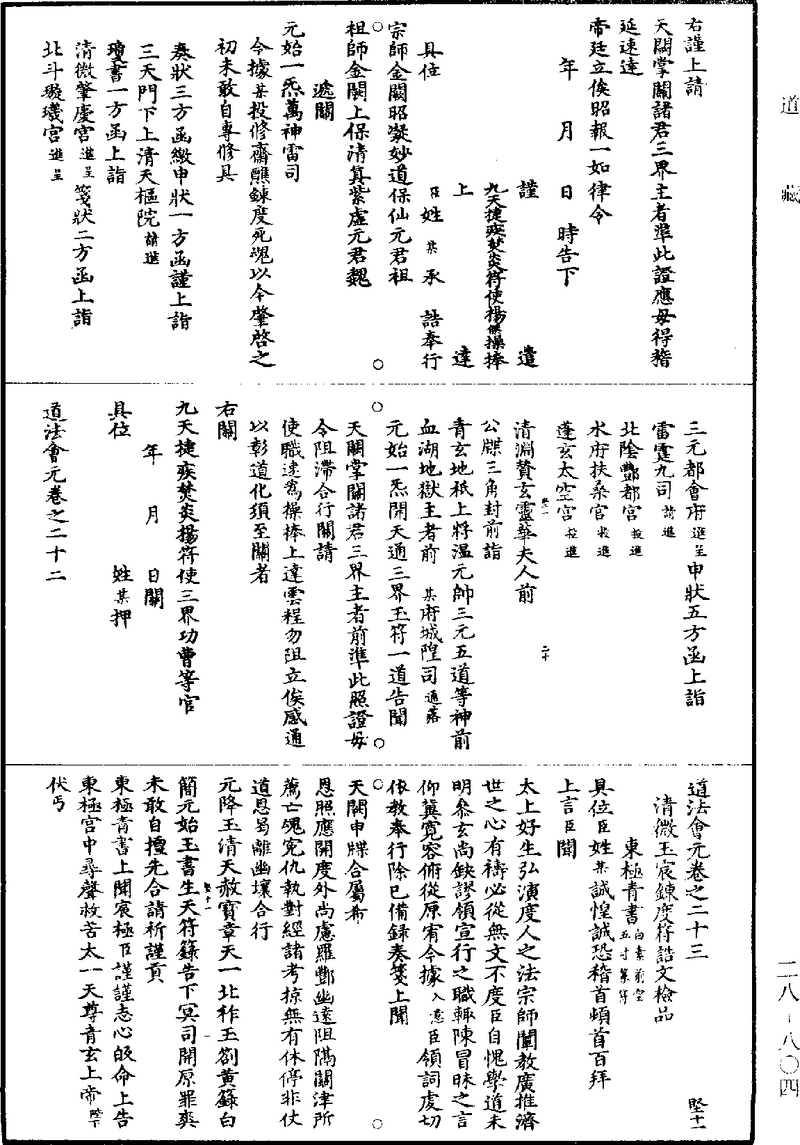 道藏
二八－八〇四
右謹上請
天闕掌關諸君三界主者準此證應毋得稽
延速達
帝廷立俟昭報一如律令
年　月　日　時告下
謹　遣
九天捷疾焚炎符使楊傑操捧
上　達
具位　臣姓某承　誥奉行
宗師金闕昭凝妙道保仙元君祖
祖師金闕上保清真紫虛元君魏
遞關
元始一炁萬神雷司
今據某投修齋醮鍊度死魂以今肇啓之
初未敢自專修具
奏狀三方函繳申狀一方函謹上詣
三天門下上清天樞院請進
瓊書一方函上詣
清微肇慶宮進呈箋狀二方函上詣
北斗璇璣宮進呈
三元都會府進呈申狀五方函上詣
雷霆九司請進
北陰酆都宮投進
水府扶桑宮投進
蓬玄太空宮投進
清淵贊玄靈華夫人前
公牒三角封前詣
青玄地祇上將溫元帥三元五道等神前
血湖地獄主者前　某府城隍司通落
元始一炁開天通三界玉符一道告聞
天闕掌關諸君三界主者前準此照證毋
令阻滯合行關請
使職速為操捧上達雲程勿阻立俟感通
以彰道化須至關者
右關
九天捷疾焚炎楊符使三界功曹等官
年　月　日關
具位　姓某押
道法會元卷之二十二
道法會元卷之二十三　堅十一
清微玉宸鍊度符誥文檢品
東極青書白素前空五寸篆符
具位臣姓某誠惶誠恐稽首頓首百拜
上言臣聞
太上好生弘演度人之法宗師闡教廣推濟
世之心有禱必從無文不度臣自愧學道未
明參玄尚缺謬領宣行之職輒陳冒昧之言
仰冀寬容俯從原宥今據入意臣領詞虔切
依教奉行除已備錄奏箋上聞
天闕申牒合屬希
恩照應開度外尚慮羅酆幽遠阻隔關津所
薦亡魂冤仇執對經諸考掠無有休停非仗
道恩曷離幽壤合行
元降玉清天赦寶章天一北祚玉劄黃籙白
簡元始玉書生天符籙告下冥司開原罪爽
未敢自擅先合請祈謹貢
東極青書上聞宸極臣謹謹志心皈命上告
東極宮中尋聲救苦太一天尊青玄上帝陛下
伏丐